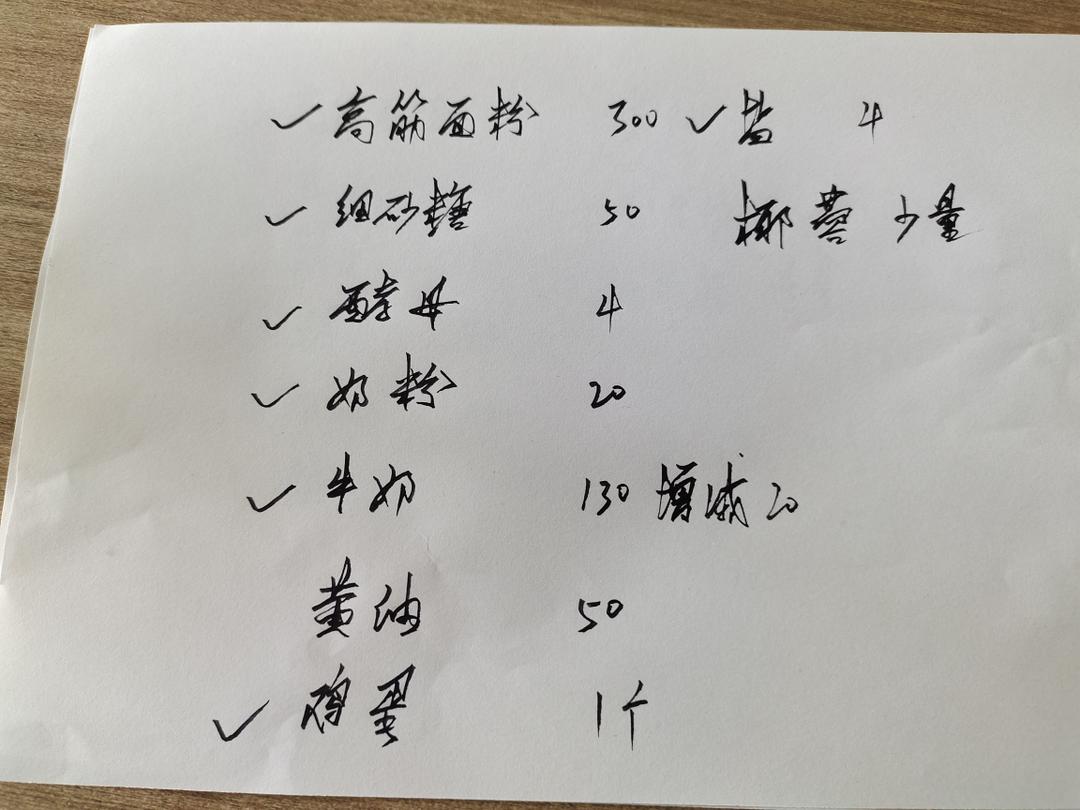 ✓高筋面粉 300 ✓盐 4
✓细砂糖 50 椰蓉 少量
✓酵母 4
✓奶粉 20
✓牛奶 130 增减20
黄油 50
✓鸡蛋 1个